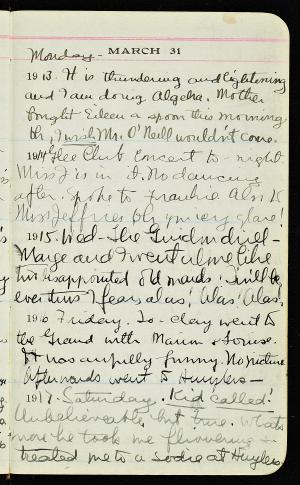 Monday - MARCH 31
1913. It is thundering and lightening
and I am doing Algebra. Mother
bought Eileen a spoon this morning
Oh, I wish Mr. O'Neill wouldn't come.
1914 Glee Club Concert to-night
Miss J is in it. No dancing
after. Spoke to Frankie Also to
Miss Jeffries Oh you icy glare!
1915. Wed - The Guidon drill -
Marge and I went ul me like
two disappointed old maids.
ever thus I fear alas! Alas! Alas.
1916 Friday. To-day went to
the Grand with Marion & Louise.
It was awfully funny. No picture
Afterwards went to Huylers -
1917. Saturday. Kid called!
Unbelieveable but true. Whats
more he took me flivvering &
treated me to a soda at Huylers